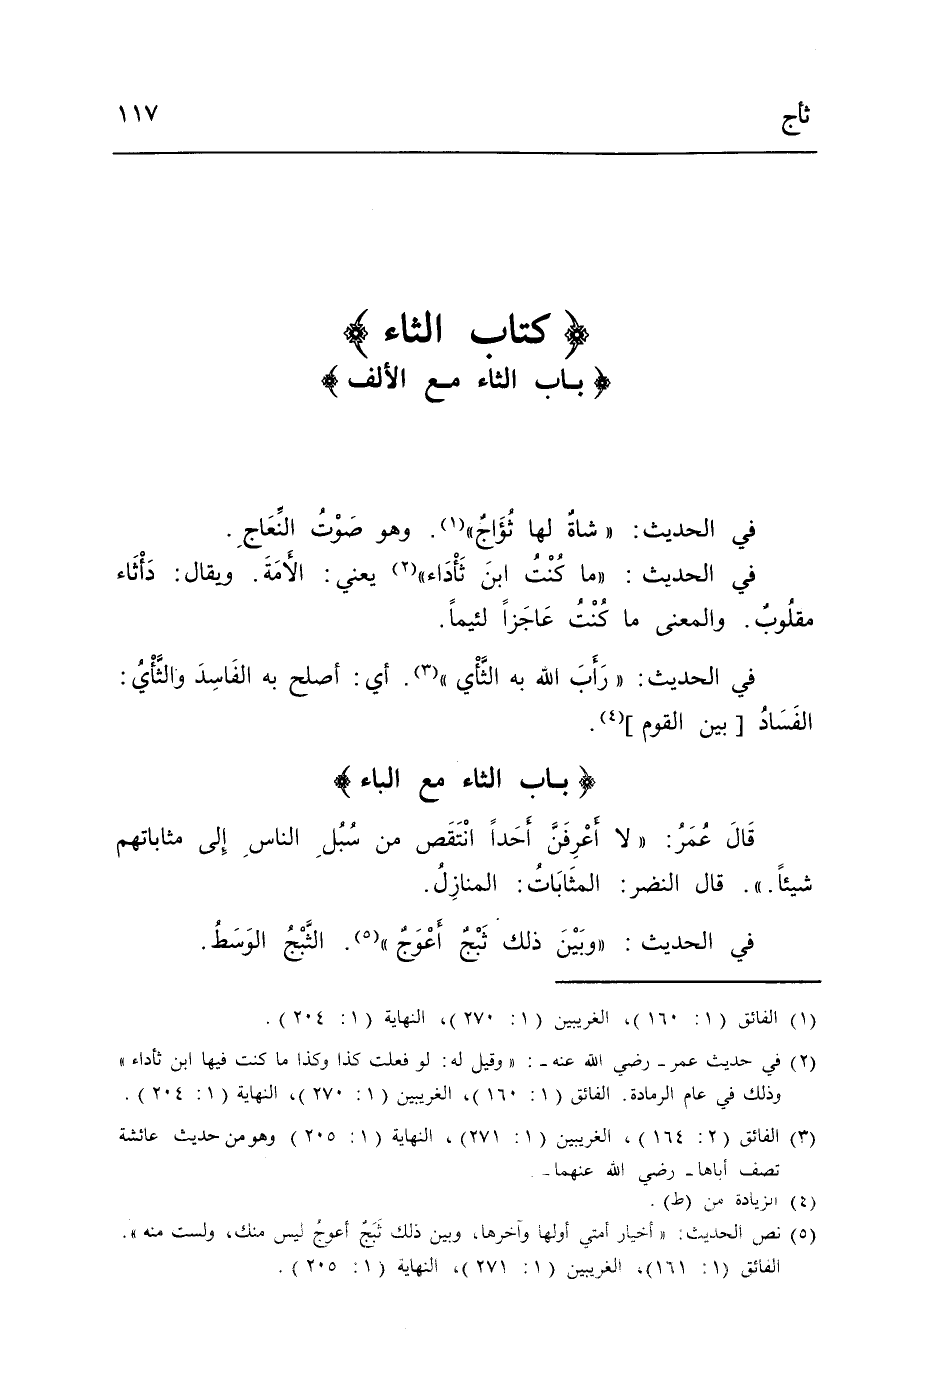 ثأج ١١٧
﴿ كتاب الثاء ﴾
﴿ باب الثاء مع الألف ﴾
في الحديث: « شاةٌ لها ثُؤَاجٌ»(١). وهو صَوْتُ النِّعَاجِ.
في الحديث : «ما كُنْتُ ابنَ ثَأْدَاء»(٢) يعني: الأَمَةَ. ويقال: دَأْثَاء
مقلُوبٌ. والمعنى ما كُنْتُ عَاجَزاً لئيماً.
في الحديث: « رَأَبَ الله به الثَّأْي »(٣). أي: أصلح به الفَاسِدَ والثَّأْيُ:
الفَسَادُ [ بين القوم ](٤).
﴿ باب الثاء مع الباء ﴾
قَالَ عُمَرُ: « لا أَعْرِفَنَّ أَحَداً انْتَقَص من سُبُلِ الناسِ إلى مثاباتهم
شيئاً.». قال النضر: المثَابَاتُ: المنازِلُ.
في الحديث : «وبَيْنَ ذلك ثَبْجٌ أَعْوَجٌ »(٥). الثَّبْجُ الوَسَطُ.
(١) الفائق ( ١: ١٦٠ )، الغريبين ( ١: ٢٧٠ )، النهاية ( ١: ٢٠٤ ) .
(٢) في حديث عمر ـ رضي الله عنه ـ : « وقيل له: لو فعلت كذا وكذا ما كنت فيها ابن ثأداء »
وذلك في عام الرمادة. الفائق ( ١: ١٦٠ )، الغريبين ( ١: ٢٧٠ )، النهاية ( ١: ٢٠٤ ) .
(٣) الفائق ( ٢: ١٦٤ ) ، الغريبين ( ١: ٢٧١) ، النهاية ( ١: ٢٠٥ ) وهو من حديث عائشة
تصف أباها ـ رضي الله عنهما ـ .
(٤) الزيادة من (ط) .
(٥) نص الحديث: « أخيار أمتي أولها وآخرها، وبين ذلك ثَبَجٌ أعوجُ ليس منك، ولست منه ».
الفائق (١: ١٦١)، الغريبين ( ١: ٢٧١ )، النهاية ( ١: ٢٠٥ ) .